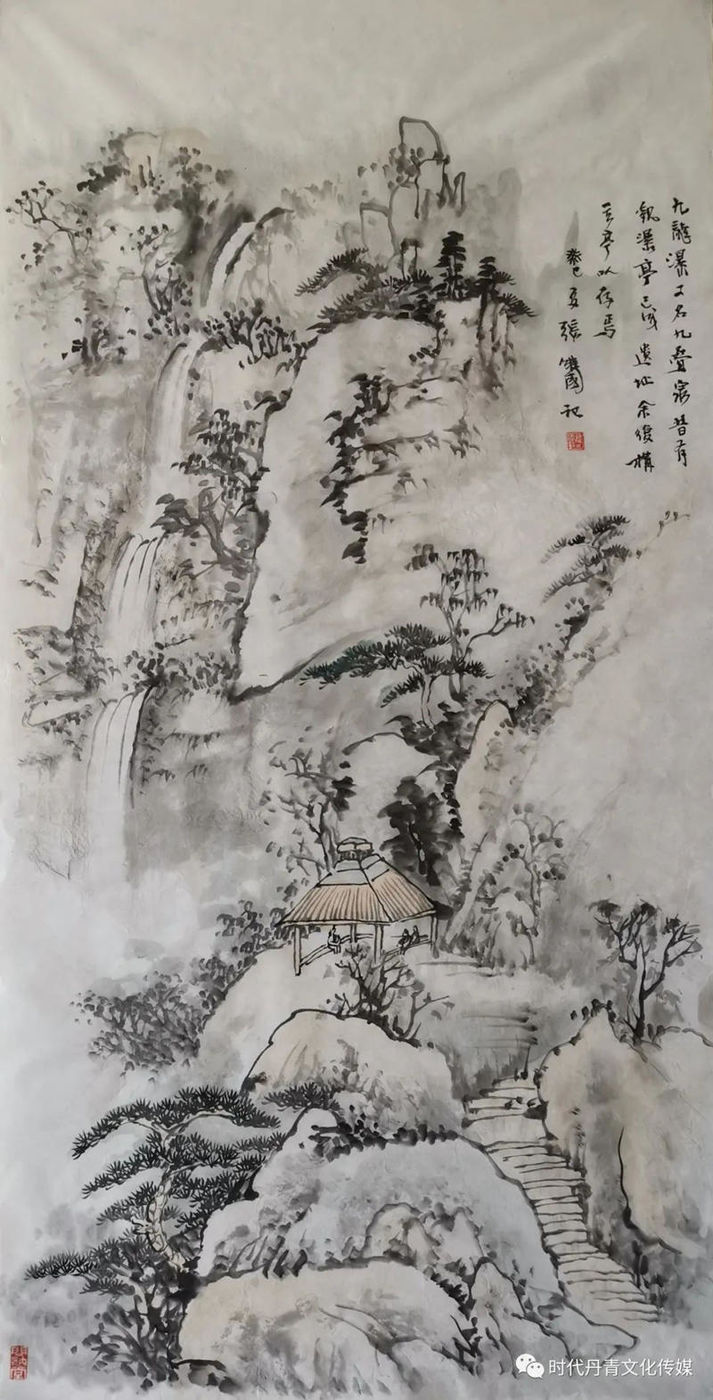 九龍瀑又名九疊泉昔有
觀瀑亭已成遺址余復構
其亭以存焉
癸巳夏張 記
时代丹青文化传媒